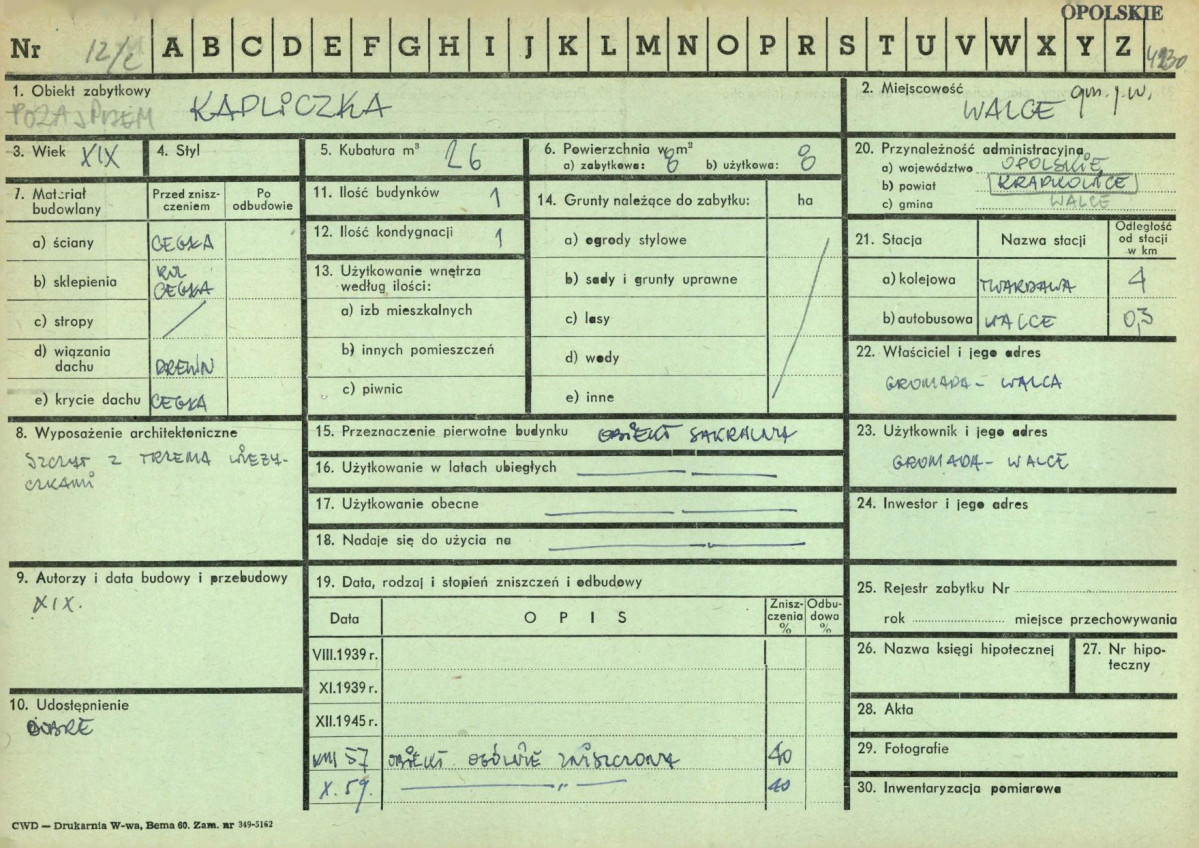 OPOLSKIE
Nr 12/ A B C D E F G H I J K L M N O P R S T U V W X Y Z 4230
1. Obiekt zabytkowy KAPLICZKA
POZA SPISEM
2. Miejscowość WALCE gm. j.w.
3. Wiek XIX
4. Styl
5. Kubatura m³ 26
6. Powierzchnia w m²
a) zabytkowa: 8 b) użytkowa: 8
7. Materiał budowlany
Przed zniszczeniem
Po odbudowie
a) ściany CEGŁA
b) sklepienia KOL CEGŁA
c) stropy /
d) wiązania dachu DREWN
e) krycie dachu CEGŁA
8. Wyposażenie architektoniczne
SZCZYT Z TRZEMA WIEŻY-
CZKAMI
9. Autorzy i data budowy i przebudowy
XIX.
10. Udostępnienie
DOBRE
11. Ilość budynków 1
12. Ilość kondygnacji 1
13. Użytkowanie wnętrza
według ilości:
a) izb mieszkalnych
b) innych pomieszczeń
c) piwnic
14. Grunty należące do zabytku: ha
a) ogrody stylowe
b) sady i grunty uprawne
c) lasy
d) wody
e) inne
15. Przeznaczenie pierwotne budynku OBIEKT SAKRALNY
16. Użytkowanie w latach ubiegłych
17. Użytkowanie obecne
18. Nadaje się do użycia na
19. Data, rodzaj i stopień zniszczeń i odbudowy
Data OPIS Znisz-
czenia
% Odbu-
dowa
%
VIII.1939 r.
XI.1939 r.
XII.1945 r.
VIII 57 OBIEKT OGÓLNIE ZNISZCZONY 40
X. 59. —„— 40
20. Przynależność administracyjna
a) województwo OPOLSKIE
b) powiat KRAPKOWICE
c) gmina WALCE
21. Stacja Nazwa stacji Odległość
od stacji
w km
a) kolejowa TWARDAWA 4
b) autobusowa WALCE 0,3
22. Właściciel i jego adres
GROMADA - WALCA
23. Użytkownik i jego adres
GROMADA - WALCE
24. Inwestor i jego adres
25. Rejestr zabytku Nr
rok miejsce przechowywania
26. Nazwa księgi hipotecznej
27. Nr hipo-
teczny
28. Akta
29. Fotografie
30. Inwentaryzacja pomiarowa
CWD — Drukarnia W-wa, Bema 60. Zam. nr 349-5162